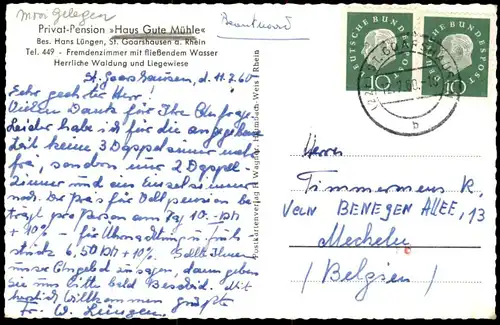 mooi gelegen
Beantwoord
Privat-Pension „Haus Gute Mühle“
Bes. Hans Lüngen, St. Goarshausen a. Rhein
Tel. 449 - Fremdenzimmer mit fließendem Wasser
Herrliche Waldung und Liegewiese
St. Goarshausen, d. 11.7.60
Sehr geehrter Herr!
Vielen Dank für Ihre Anfrage.
Leider habe ich für die angegebene
Zeit keine 3 Doppelzimmer mehr
frei, sondern nur 2 Doppel-
Zimmer und ein Einzelzimmer
noch. Der Preis für Vollpension be-
trägt pro Person am Tag 10.- DM
+ 10% – für Übernachtung u. Früh-
stück 6,50 DM + 10%. Sollte Ihnen
unser Angebot zusagen, dann geben
Sie uns bitte bald Bescheid. Mit
herzlich Willkommen grüßt
Fr. W. Lüngen
Postkartenverlag H. Wagner, Heimbach-Weis / Rhein
DEUTSCHE BUNDESPOST
10
DEUTSCHE BUNDESPOST
10
ST. GOARSHAUSEN
60.
b
Herrn
Timmermans R,
Van BENEGEN ALLEE, 13
Mecheln
(Belgien)